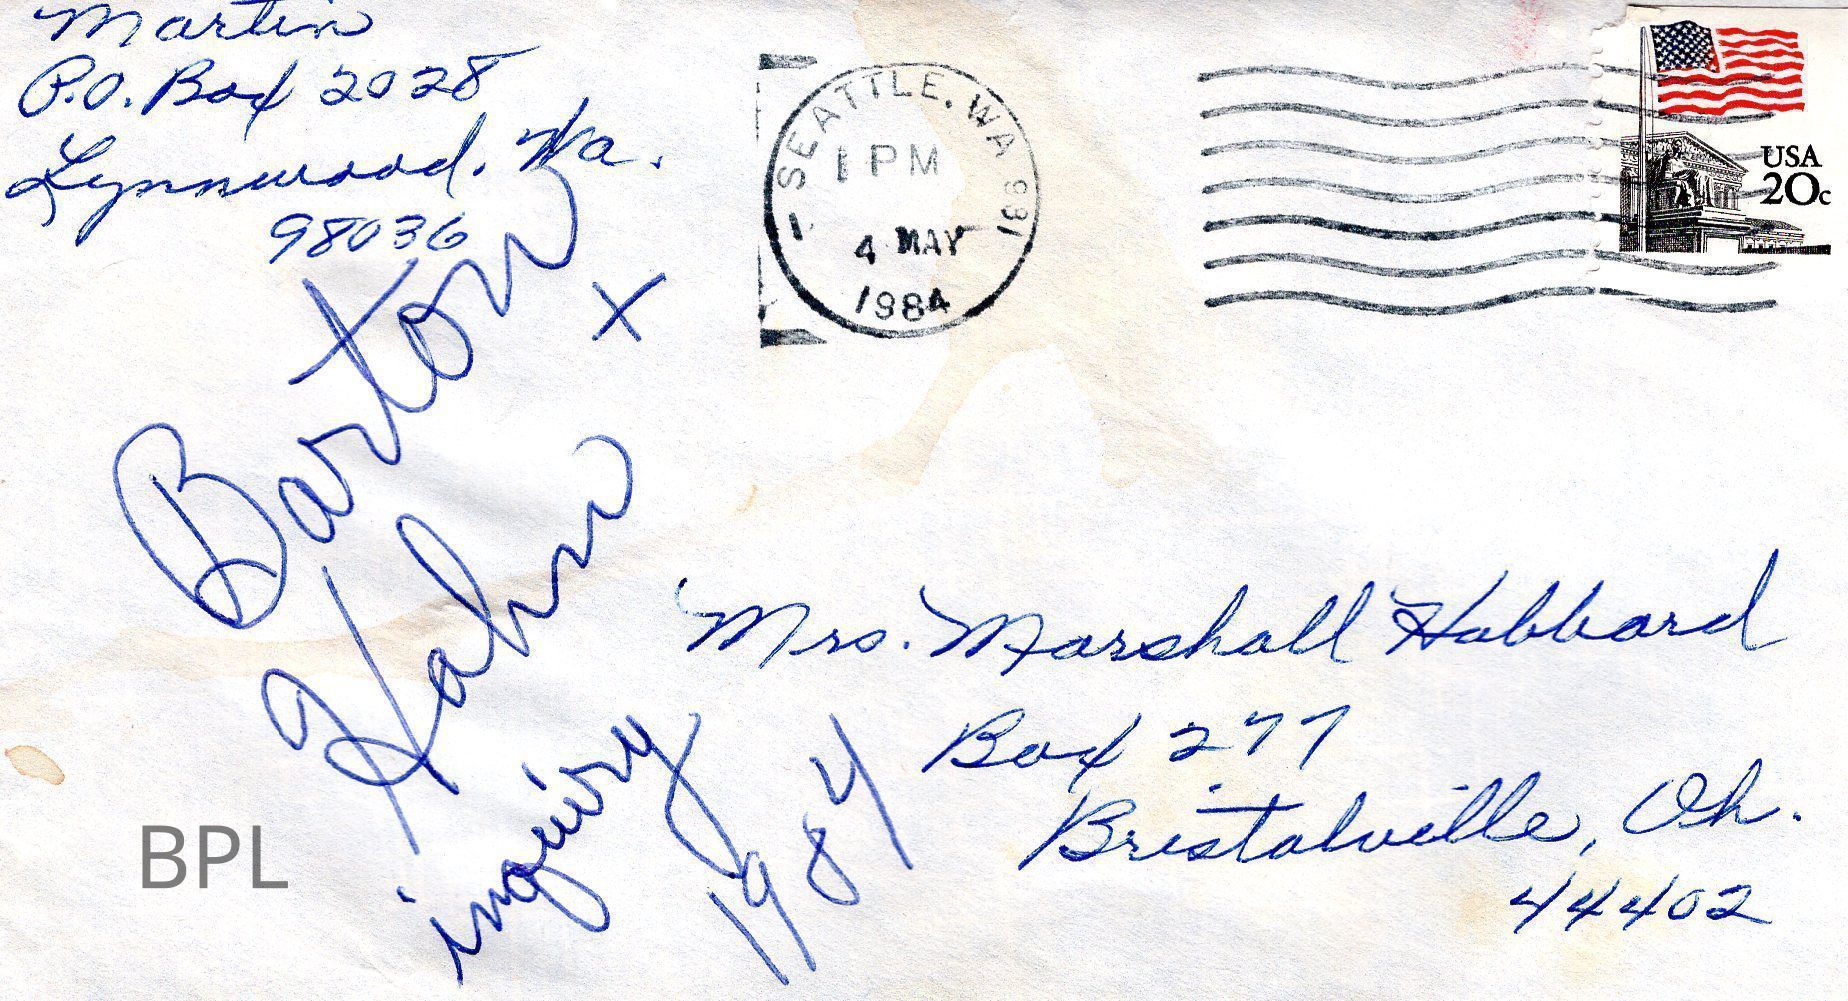 Martin
P.O. Box 2028
Lynnwood, Wa.
98036
SEATTLE, WA 981
1 PM
4 MAY
1984
USA
20c
Barton
x
Hahn
inquiry
1984
Mrs. Marshall Hubbard
Box 277
Bristolville, Oh.
44402
BPL